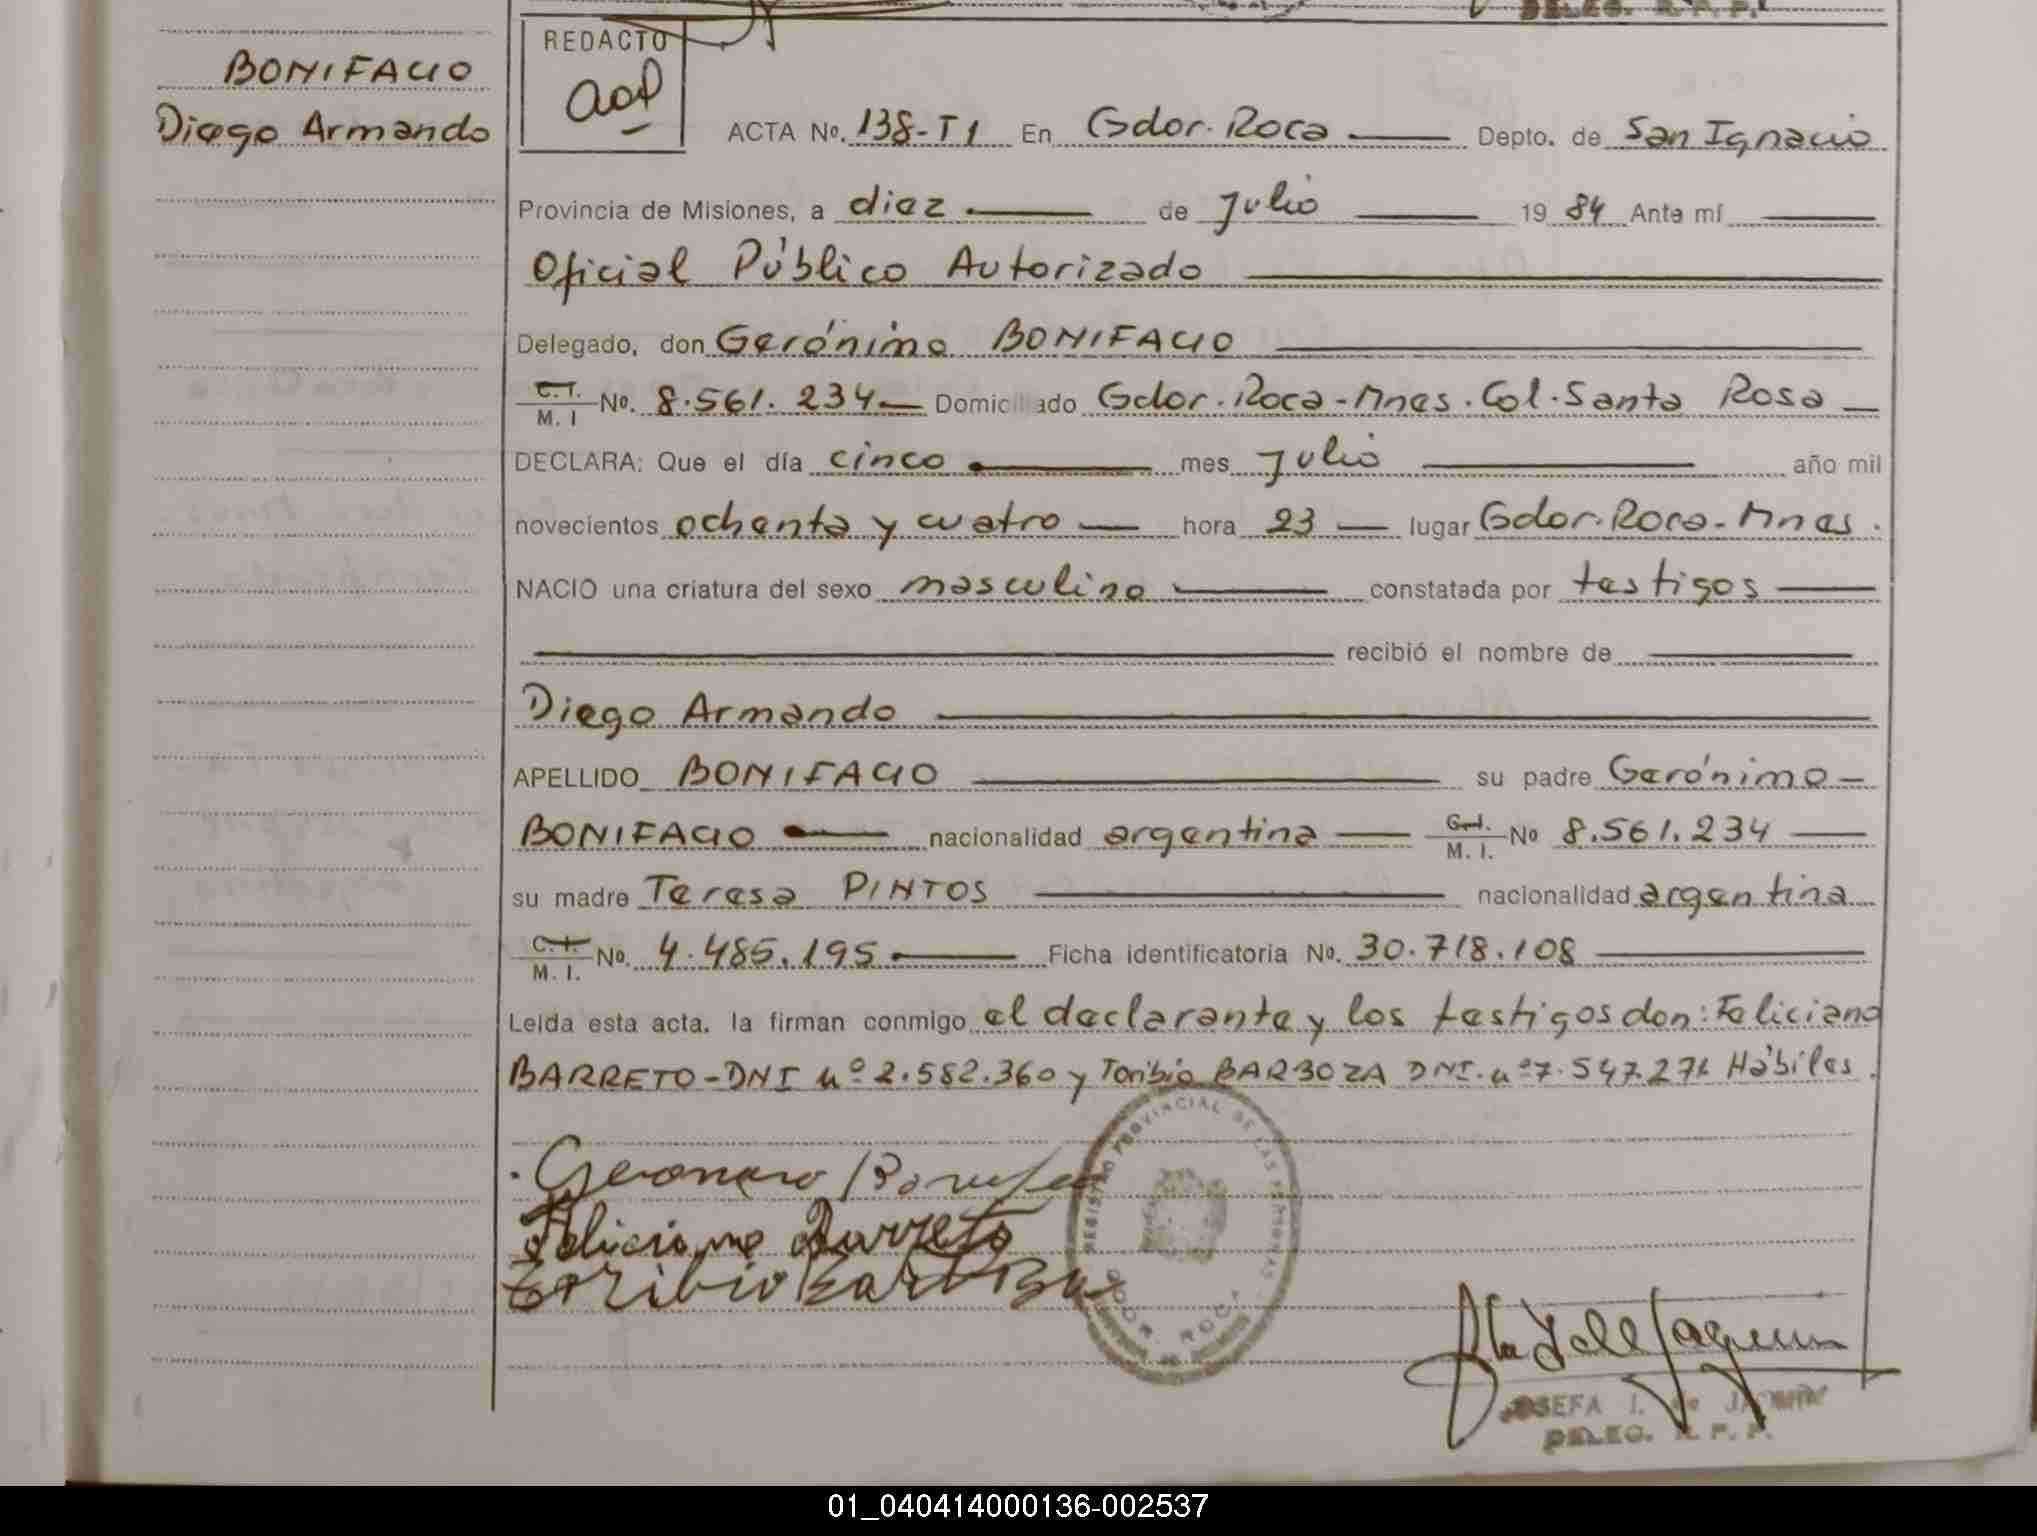 BONIFACIO
Diego Armando
REDACTO
ACTA No. 138-T1 En Gdor. Roca Depto. de San Ignacio
Provincia de Misiones, a diez de Julio 19 84 Ante mí
Oficial Público Autorizado
Delegado, don Gerónimo BONIFACIO
C.I. M. I No. 8.561.234 Domiciliado Gdor. Roca - Mnes. Col. Santa Rosa
DECLARA: Que el día cinco mes Julio año mil
novecientos ochenta y cuatro hora 23 lugar Gdor. Roca - Mnes.
NACIO una criatura del sexo masculino constatada por testigos
recibió el nombre de
Diego Armando
APELLIDO BONIFACIO su padre Gerónimo
BONIFACIO nacionalidad argentina C.I. M. I. No 8.561.234
su madre Teresa PINTOS nacionalidad argentina
C.I. M. I. No. 4.485.195 Ficha identificatoria No. 30.718.108
Leida esta acta, la firman conmigo el declarante y los testigos don: Feliciano
BARRETO - DNI nº 2.582.360 y Toribio BARBOZA DNI. nº 7.547.271 Hábiles.
REGISTRO PROVINCIAL DE LAS PERSONAS
GDOR. ROCA
Feliciano Barreto
DELEG. R. P. P.
01_040414000136-002537